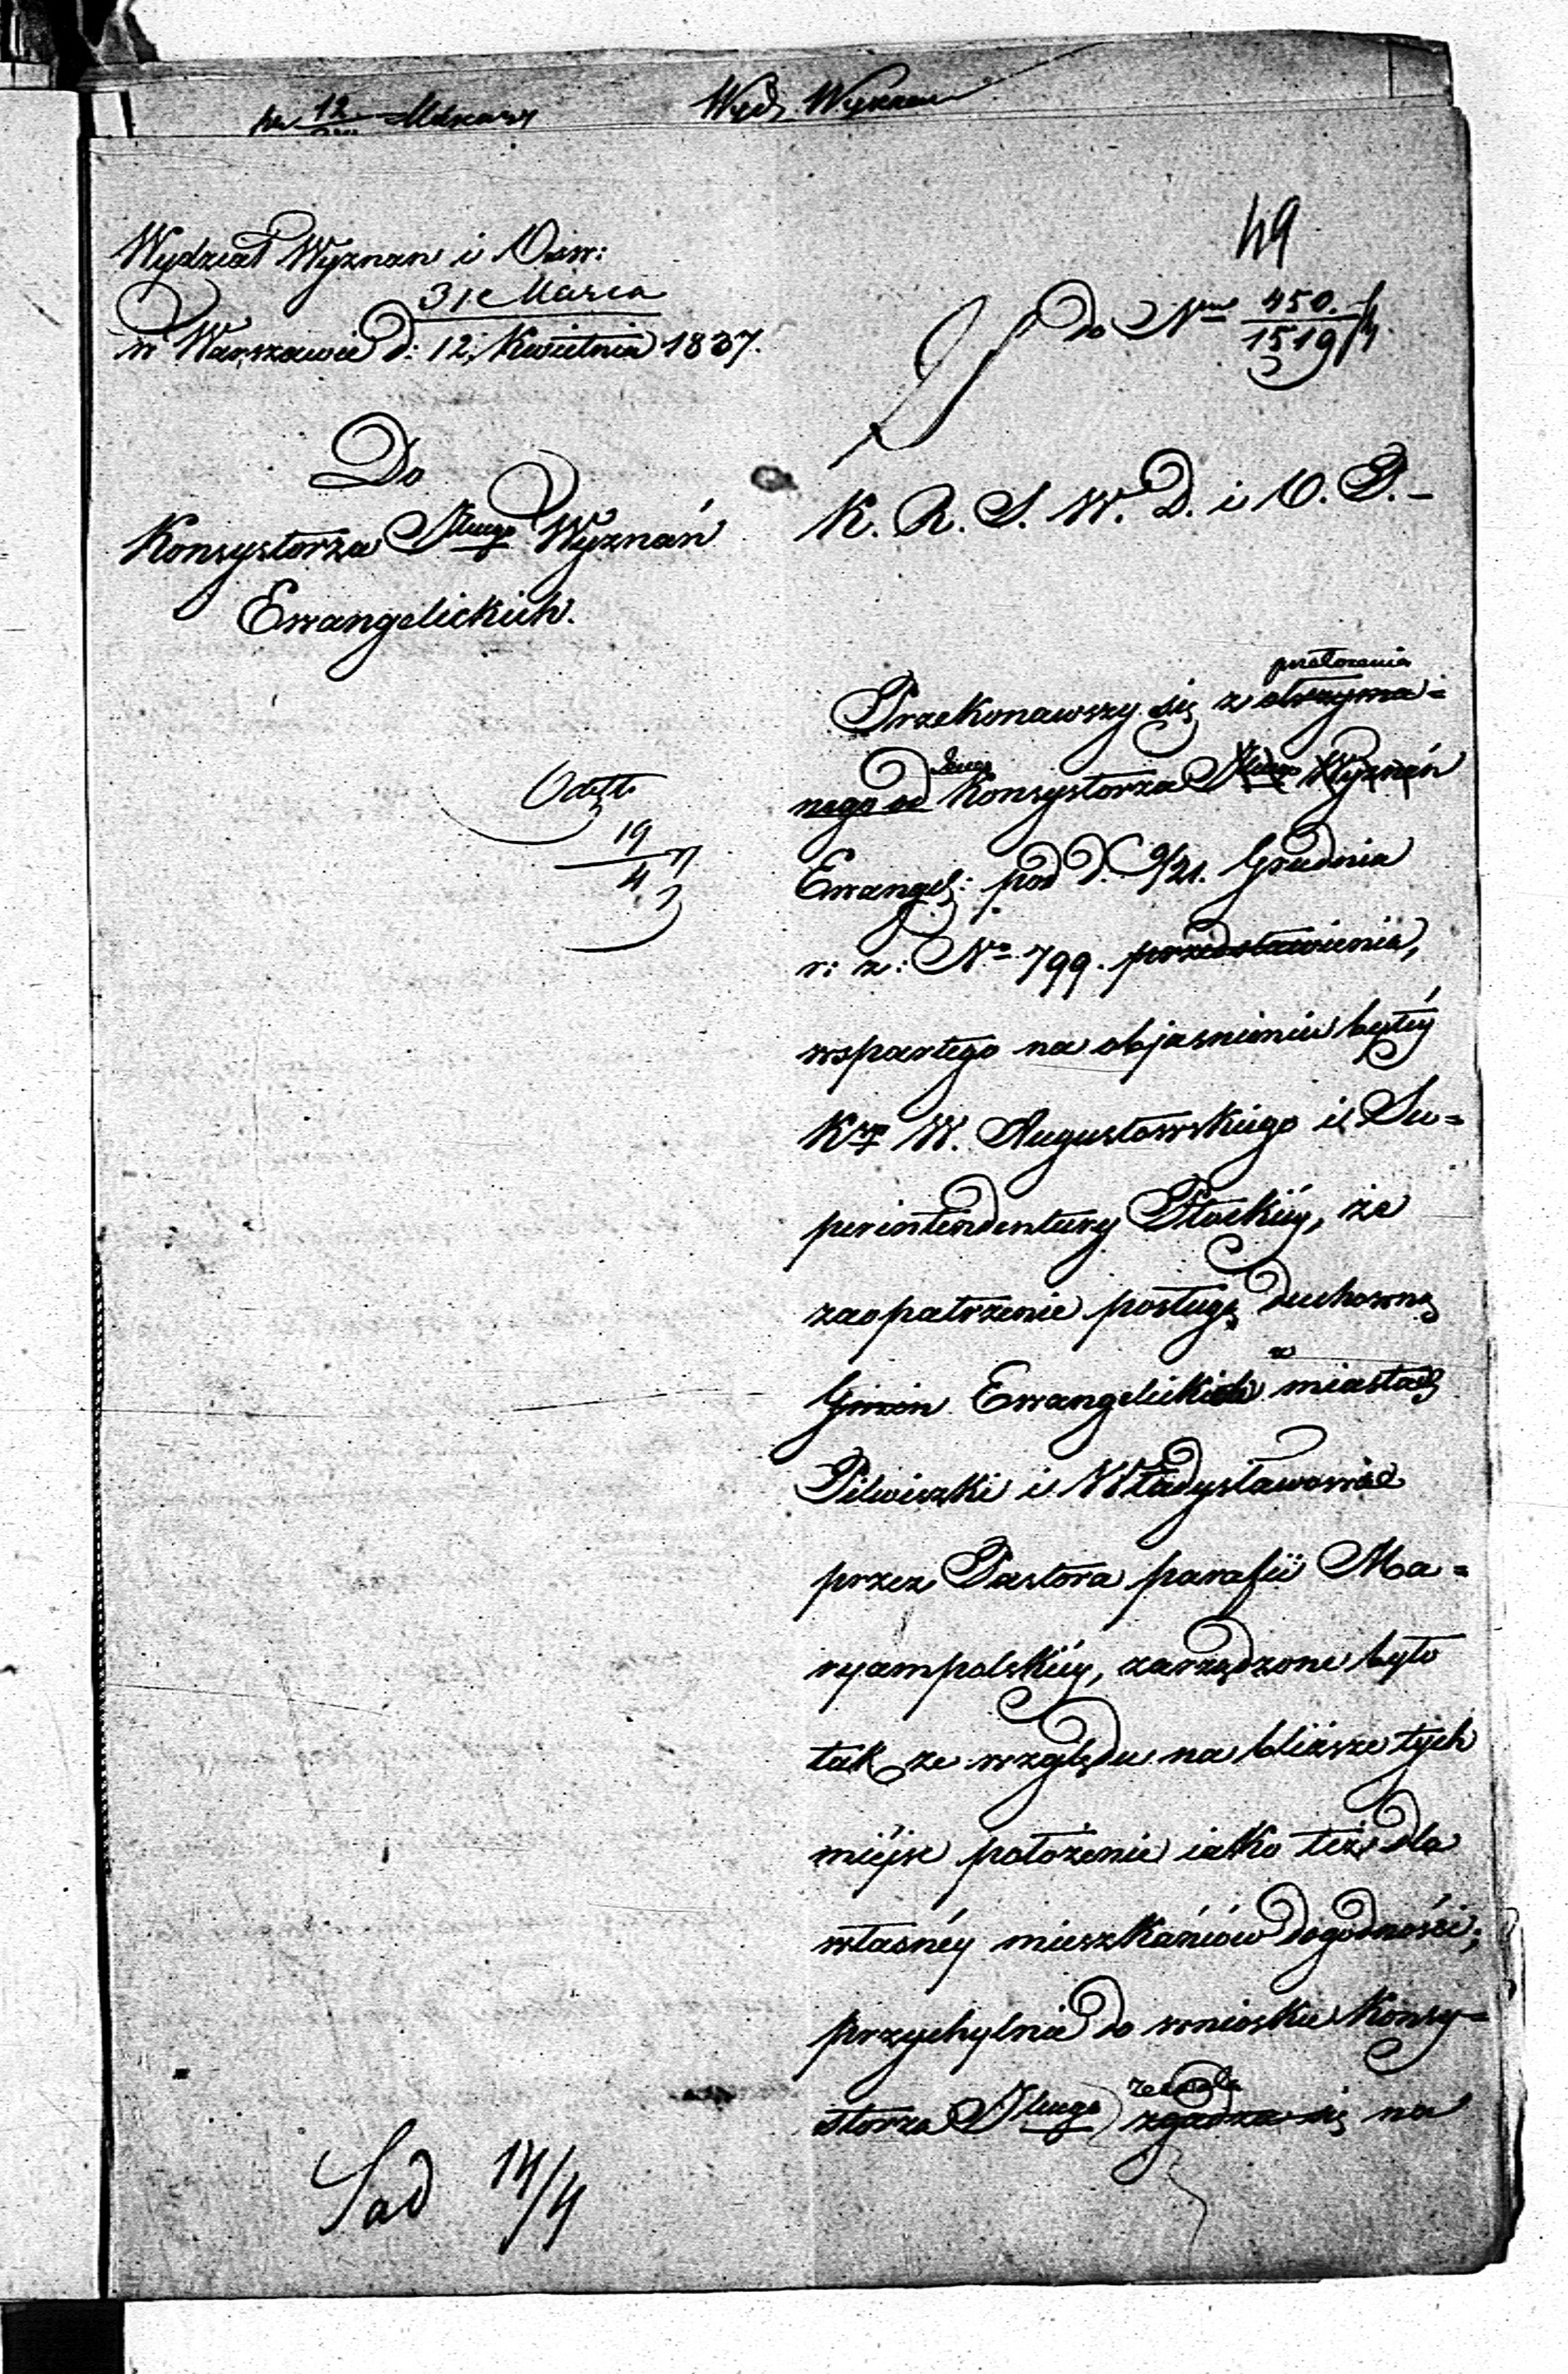 49
Wydział Wyznan i Ośw:
31 Marca
w Warszawie d: 12 Kwietnia 1837.
do Nru 450.
1519
Do
Konsystorza Glnego Wyznań
Ewangelickich.
K. R. S. W. D. i O. P. -
przełożenia
Przekonawszy się z otrzyma=
nego od Konsystorza Glnego Wyznań
Ewangel: pod d. 9/21. Grudnia
r: z: No 799. przedstawienia,
wspartego na objasnieniu byłéy
Kssyi W. Augustowskiego i Su=
perintendentury Płockiéy, że
zaopatrzenie posługą duchowną
w
Gmin Ewangelickich miastach
Pilwiszki i Władysławowie
przez Pastora parafii Ma=
ryampolskiéy, zarządzone było
tak ze względu na bliższe tych
miéjsc położenie iako też dla
własnéy mieszkańców dogodności;
przychylnie do wniosku Konsy=
storza Glnego zgadza się na
19
4
Sad 14/4